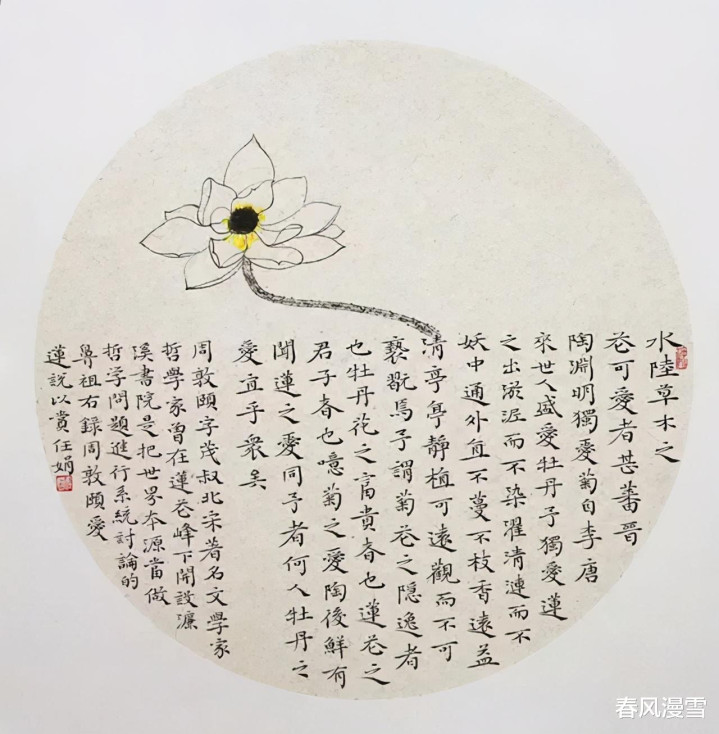 水陸草木之
花可愛者甚蕃晉
陶淵明獨愛菊自李唐
來世人盛愛牡丹予獨愛蓮
之出淤泥而不染濯清漣而不
妖中通外直不蔓不枝香遠益
清亭亭靜植可遠觀而不可
褻翫焉予謂菊花之隱逸者
也牡丹花之富貴者也蓮花之
君子者也噫菊之愛陶後鮮有
聞蓮之愛同予者何人牡丹之
愛宜乎衆矣
周敦頤字茂叔北宋著名文學家
哲學家曾在蓮花峰下開設濂
溪書院是把世界本源當做
哲學問題進行系統討論的
鼻祖右錄周敦頤愛
蓮說以賞任娟
春风漫雪